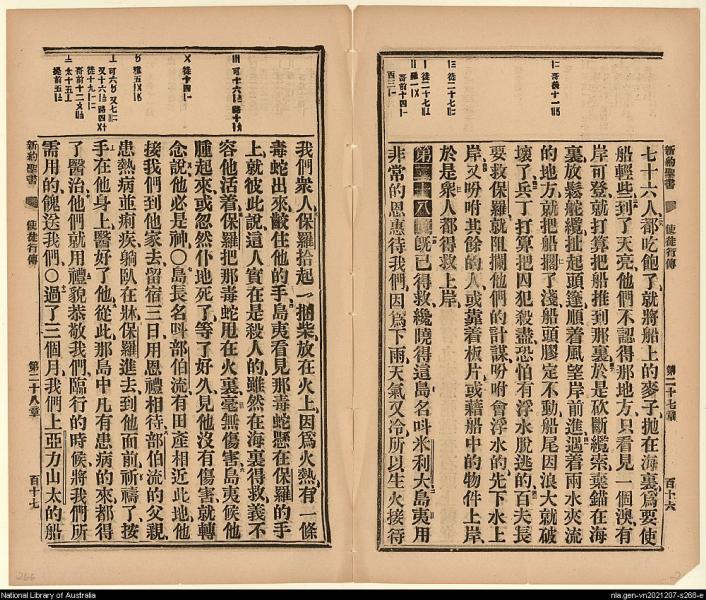 新約聖書 使徒行傳 第二十七章 百十六
七十六人都吃飽了就將船上的麥子拋在海裏爲要使
船輕些到了天亮他們不認得那地方只看見一個澳有
岸可登就打算把船推到那裏於是砍斷纜索棄錨在海
裏放鬆舵纜扯起頭篷順着風望岸前進遇着兩水夾流
的地方就把船擱了淺船頭膠定不動船尾因浪大就破
壞了兵丁打算把囚犯殺盡恐怕有浮水脫逃的百夫長
要救保羅就阻攔他們的計謀吩咐會浮水的先下水上
岸又吩咐其餘的人或靠着板片或藉船中的物件上岸
於是衆人都得救上岸
第二十八章旣已得救纔曉得這島名呌米利大島夷用
非常的恩惠待我們因爲下雨天氣又冷所以生火接待
我們衆人保羅拾起一捆柴放在火上因爲火熱有一條
毒蛇出來齩住他的手島夷看見那毒蛇懸在保羅的手
上就彼此說這人實在是殺人的雖然在海裏得救義不
容他活着保羅把那毒蛇甩在火裏毫無傷害島夷候他
腫起來或忽然仆地死了等了好久見他沒有傷害就轉
念說他必是神〇島長名呌部伯流有田產相近此地他
接我們到他家去留宿三日用恩禮相待部伯流的父親
患熱病並痢疾躺臥在牀保羅進去到他面前祈禱了按
手在他身上醫好了他從此那島中凡有患病的來都得
了醫治他們就用禮貌恭敬我們臨行的時候將我們所
需用的餽送我們〇過了三個月我們上亞力山太的船
新約聖書 使徒行傳 第二十八章 百十七
National Library of Australia
nla.gen-vn2021207-s268-e